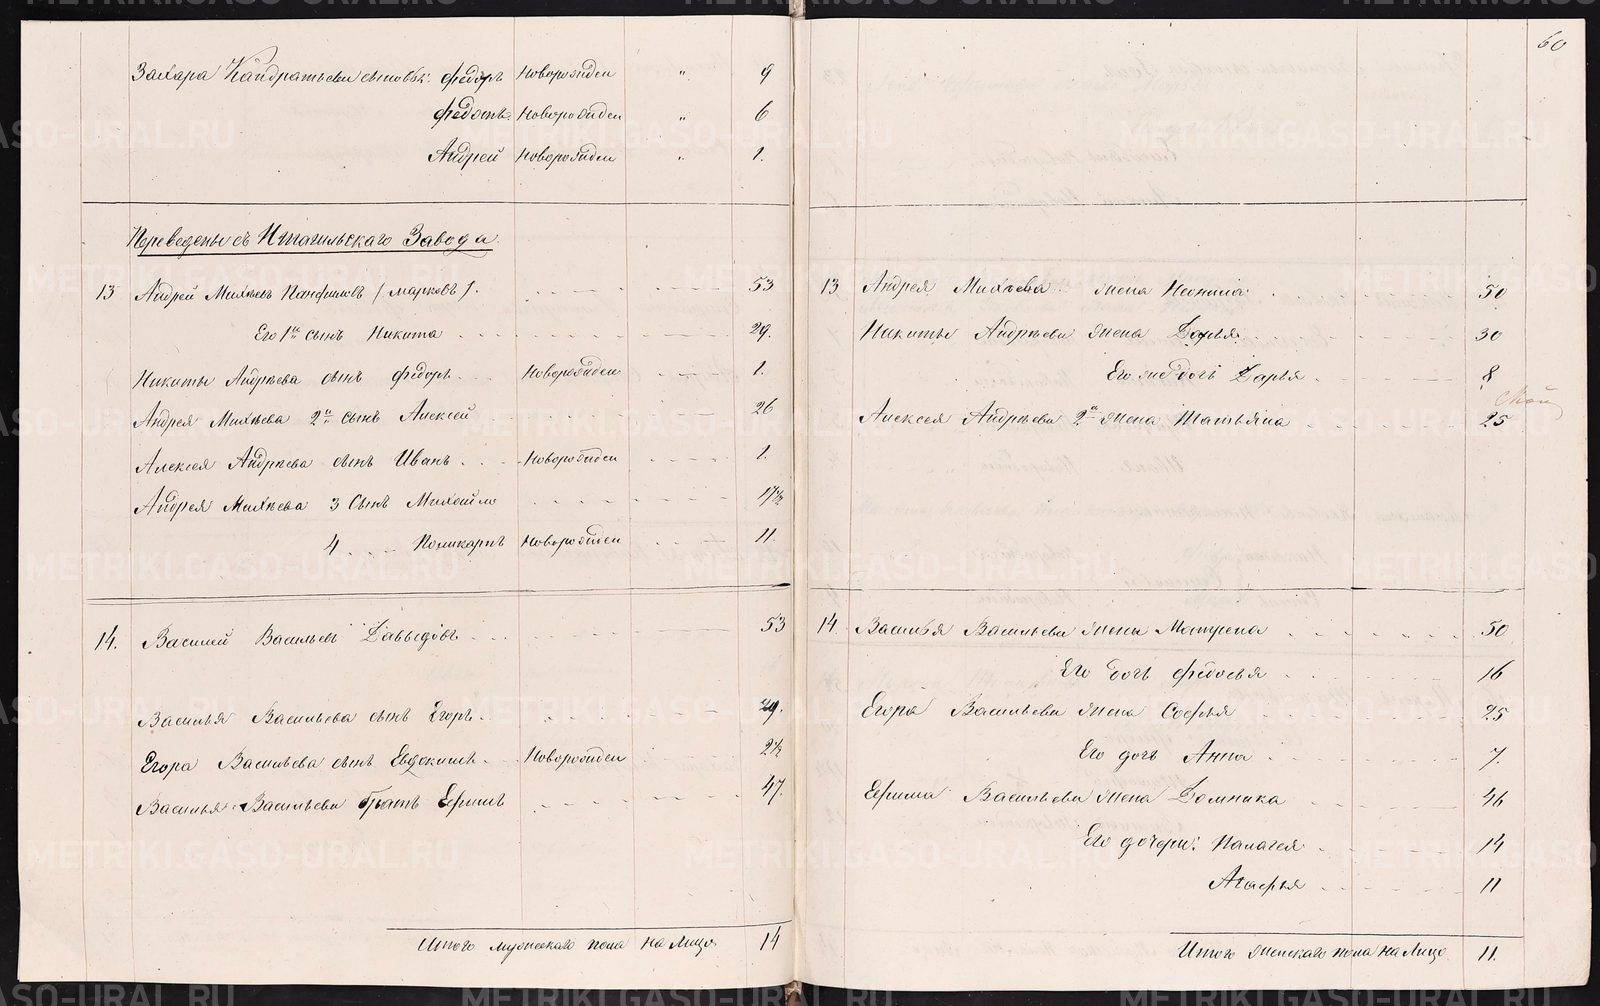 60
Захара Кандратьева сыновья: Федоръ Новорожден " 9
Федотъ Новорожден " 6
Андрей Новорожден " 1.
Переведены съ Нтагильскаго Завода.
13 Андрей Михѣевъ Панфиловъ (Марковъ). 53
Его 1й сынъ Никита 29.
Никиты Андрѣева сынъ Федоръ Новорожден 1.
Андрея Михѣева 2й сынъ Алексей 26
Алексея Андрѣева сынъ Иванъ Новорожден 1.
Андрея Михѣева 3 сынъ Михайло 17½
4 Поликарпъ Новорожден 11.
14. Василей Васильевъ Давыдовъ 53
Василья Васильева сынъ Егоръ 29.
Егора Васильева сынъ Евдокимъ Новорожден 2½
Василья Васильева братъ Ефимъ 47.
Итого мужескаго пола на лицо 14
13 Андрея Михѣева жена Неонила 50
Никиты Андрѣева жена Дарья 30
Его же дочь Дарья 8
Алексея Андрѣева 2я жена Татьяна 25
14 Василья Васильева жена Матрена 50
Его дочь Федосья 16
Егора Васильева жена Софья 25
Его дочь Анна 7.
Ефима Васильева жена Домника 46
Его дочери: Палагея 14
Агафья 11
Итого женскаго пола на лицо 11.
METRIKI.GASO-URAL.RU